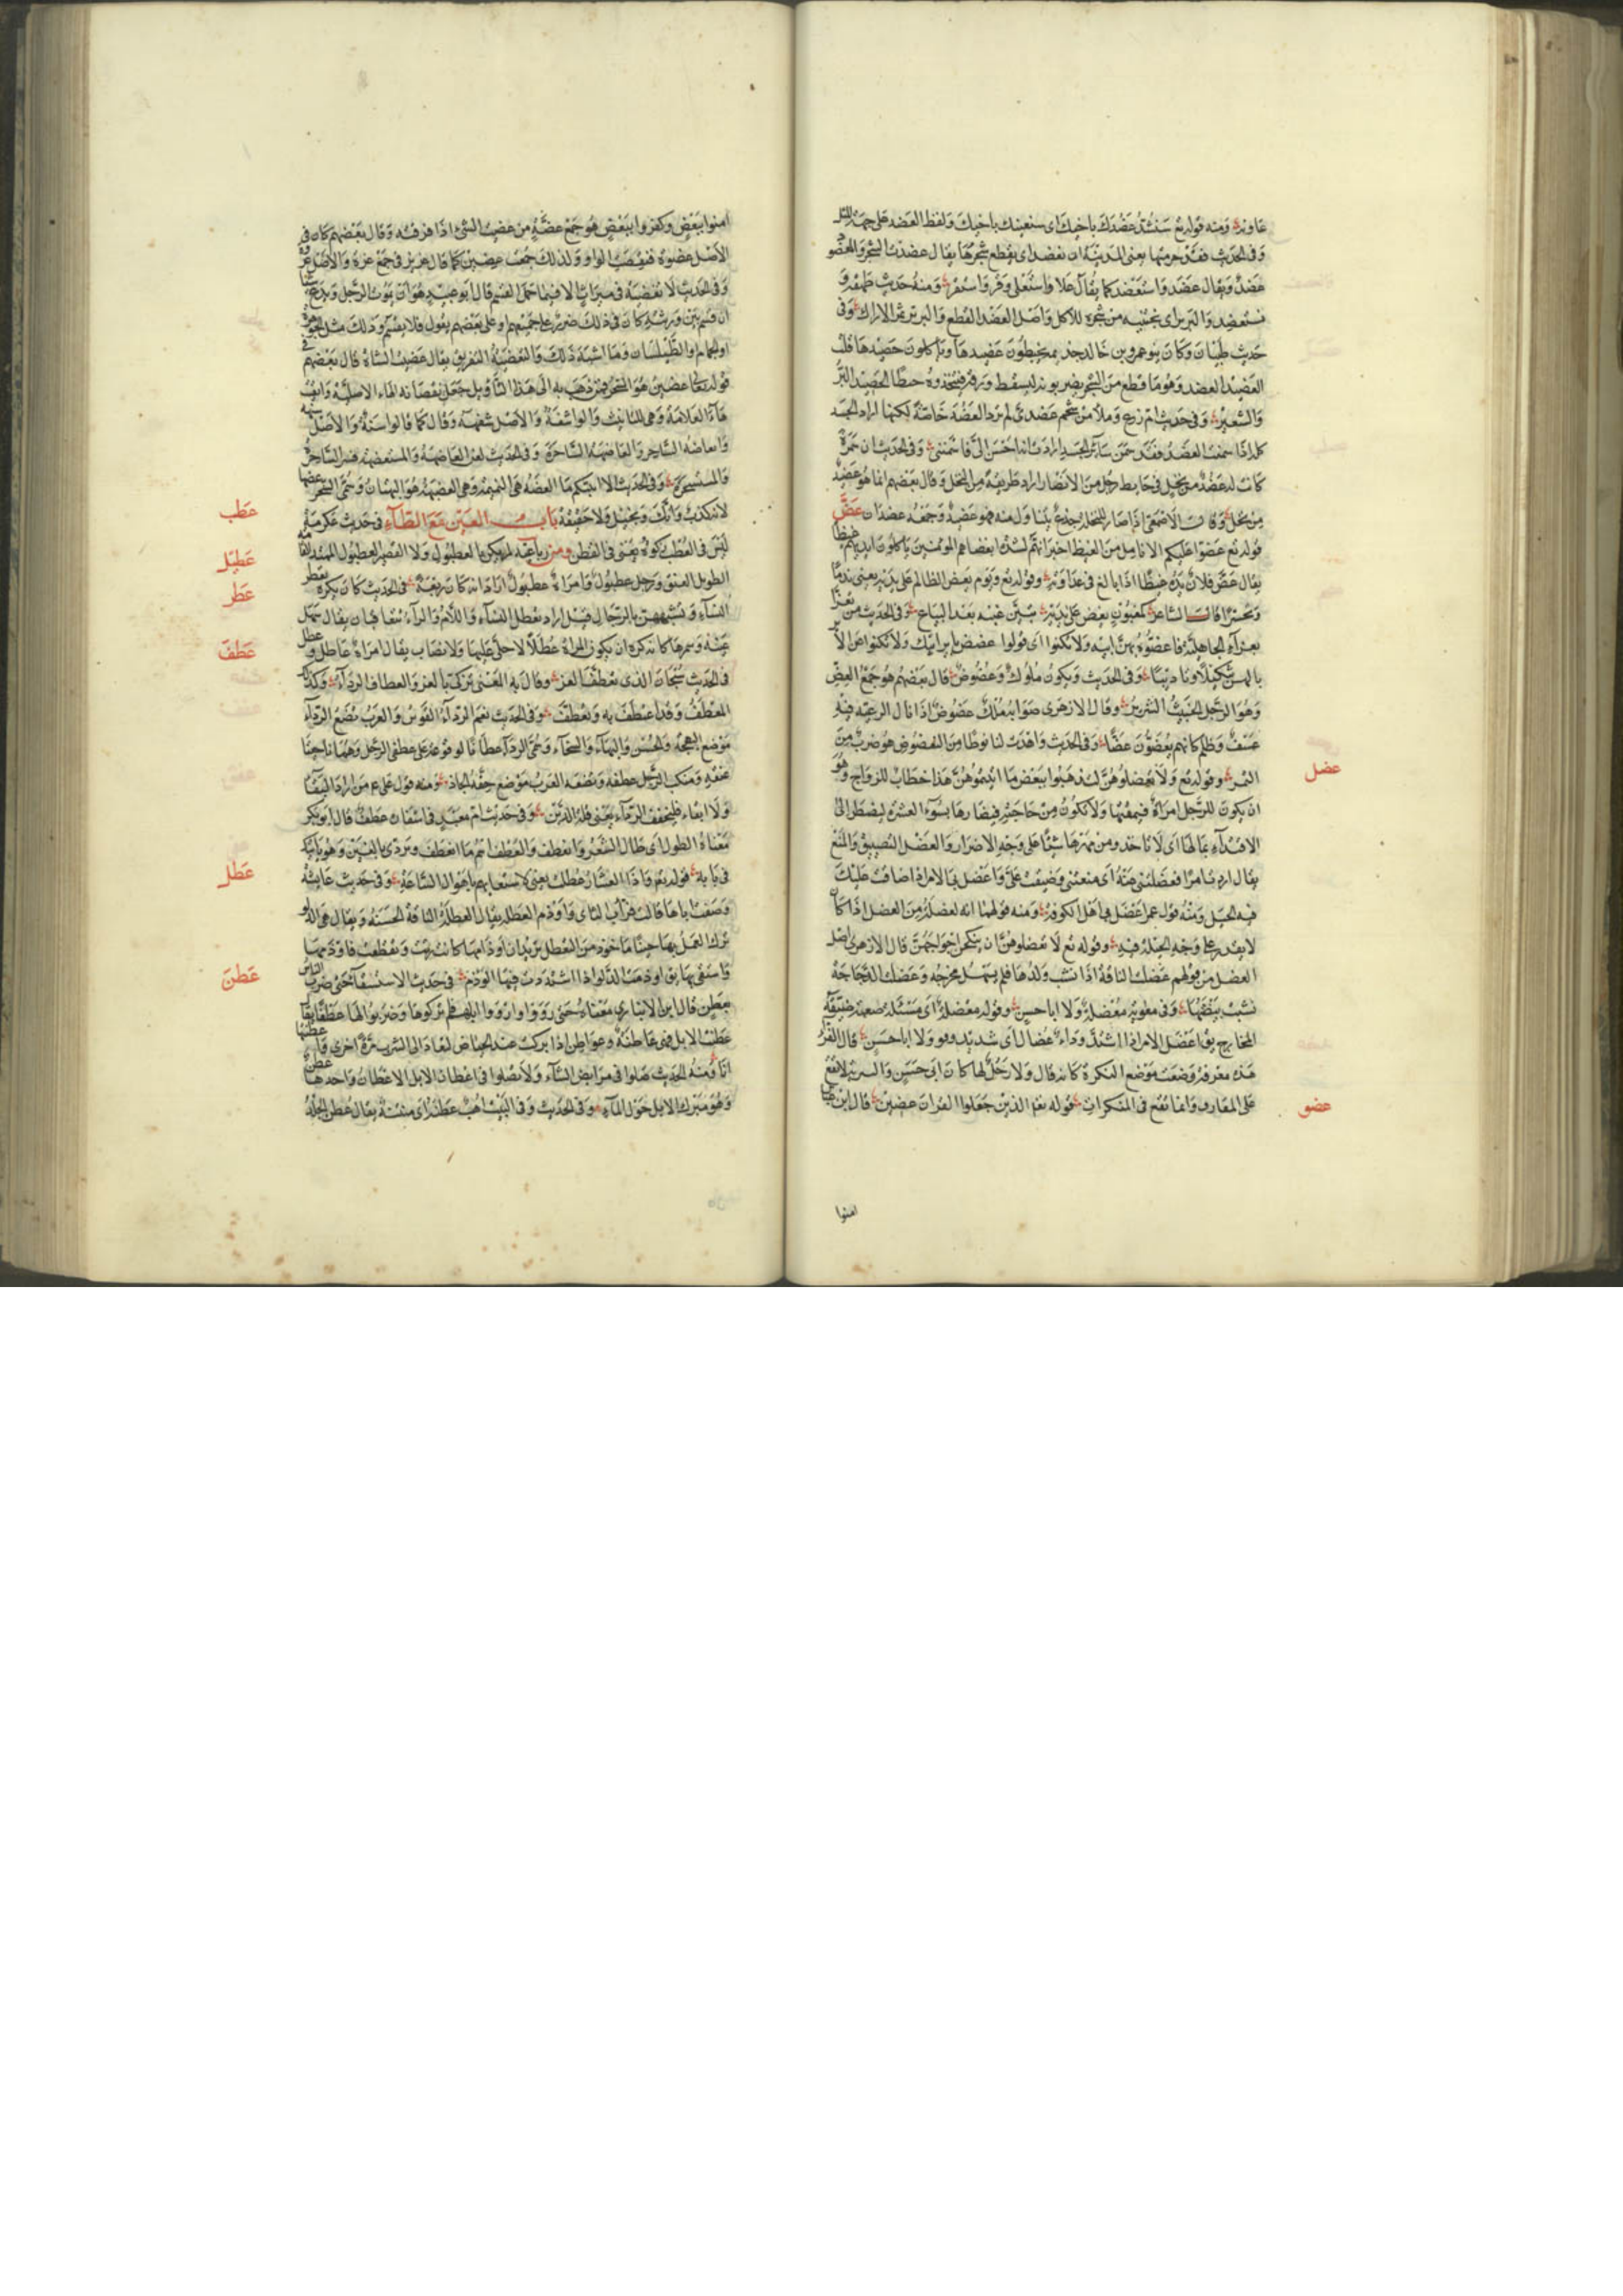 عاونه ومنه قوله تع سنشد عضدك باخيك اى سنعينك باخيك ولفظ العضد على جهة المثل
وفى الحديث حرمتها يعنى المدينة ان تعضد اى يقطع شجرها يقال عضدت الشجر والمعضو
عضد ويقال عضد واستعضد كما يقال علا واستعلى وقر واستقر ومنه حديث طهفة و
نستعضد البرير اى نجتنيه من شجره للاكل واصل العضد القطع والبرير ثمر الاراك وفى
حديث ظبيان وكان بنو عمرو بن خالد يخبطون عضيدها وياكلون حصيدها قلت
العضيد العضد وهو ما قطع من الشجر يضربونه ليسقط ورقه فيتخذوه خبطا الحصيد البر
والشعير وفى حديث ام زرع وملأ من شحم عضدى لم ترد العضد خاصة لكنها ارادت الجسد
كله اذا سمنت العضد فقد سمن سائر الجسد ارادت انه احسن الى فاسمننى وفى الحديث ان سمرة
كانت له عضد من نخل فى حايط رجل من الانصار اراد طريقة من النخل وقال بعضهم انما هو عضيد
من نخل وقال الاصمعى اذا صار للنخلة جذع يتناول منه فهو عضيد وجمعه عضدان عض
قوله تع عضوا عليكم الانامل من الغيظ اخبر انهم لشدة ابغاضهم المومنين ياكلون ايديهم غيظا
يقال عض فلان يده غيظا اذا بالغ فى عداوته وقوله تع ويوم يعض الظالم على يديه يعنى ندما
وتحسرا قال الشاعر كمغبون يعض على يديه تبين غبنه بعد البياع وفى الحديث من تعزى
بعزاء الجاهلية فاعضوه بهن ابيه ولا تكنوا اى قولوا اعضض باير ابيك ولا تكنوا عن الاير
بالهن تنكيلا وتاديبا وفى الحديث ويكون ملوك عضوض قال بعضهم هو جمع العض
وهو الرجل الخبيث الشرير وقال الازهرى صوابه ملك عضوض اذا نال الرعية منه
عسف وظلم كانهم يعضون عضا وفى الحديث واهدت لنا نوطا من التعضوض هو ضرب من
التمر وقوله تع ولا تعضلوهن لتذهبوا ببعض ما اتيتموهن هذا خطاب للازواج وهو
عضل
ان يكون للرجل امراة فيمسكها ولا تكون من حاجته فيضارها بسوء العشرة ليضطرها الى
الافتداء بمالها اى لا تاخدو من مهرها شيئا على وجه الاضرار والعضل التضييق والمنع
يقال اردت امرا فعضلتنى عنه اى منعتنى وضيقت على واعضل بى الامر اذا ضاقت عليك
فيه الحيل ومنه قول عمر اعضل بى اهل الكوفة ومنه قولهم انه لعضلة من العضل اذا كان
لا يقدر على وجه الحيلة فيه وقوله تع لا تعضلوهن ان ينكحن ازواجهن قال الازهرى اصل
العضل من قولهم عضلت الناقة اذا نشب ولدها فلم يسهل مخرجه وعضلت الدجاجة
نشبت بيضتها وفى معوية معضلة ولا ابا حسن وقوله معضلة اى مسئلة صعبة ضيقة
المخارج يق اعضل الامر اذا اشتد وداء عضال اى شديد وهو ولا ابا حسن قال الفراء
هذه معرفة وضعت موضع النكرة كانه قال ولا رجل لها كان ابى حسن والتبرئة لا تقع
على المعارف وانما تقع فى المنكرات قوله تع الذين جعلوا القران عضين قال ابن عباس
عضو
امنوا
امنوا ببعض وكفروا ببعض هو جمع عضة من عضيت الشئ اذا فرقته وقال بعضهم كان فى
الاصل عضوة فنقصت الواو ولذلك جمعت عضين كما قال عزين فى جمع عزة والاصل عزوة
وفى الحديث لا تعضية فى ميراث الا فيما حمل القسم قال ابو عبيد هو ان يموت الرجل ويدع شيئا
ان قسم بين ورثته كان فى ذلك ضرر على جميعهم او على بعضهم يقول فلا يقسم وذلك مثل الجوهرة
او الحمام او الطيلسان وما اشبه ذلك والتعضية التفريق يقال عضيت الشاة قال بعضهم فى
قوله تعالى عضين هو السحر فمن ذهب به الى هذا التاويل جعل نقصانه الهاء الاصلية وابقيت
هاء العلامة وهى للتانيث والواشفة والاصل شفهة وقال كما قالوا سنة والاصل سنهة
والعاضه الساحر والعاضهة الساحرة وفى الحديث لعن العاضهة والمستعضهة فسر الساحرة
والمستسحرة وفى الحديث الا انبئكم ما العضه هى النميمة وهى العضيهة هو البهتان وسمى السحر عضها
لانه كذب وافك وتخييل ولا حقيقة باب العين مع الطاء فى حديث عكرمة
عطب
ليس فى العطب زكوة يعنى فى القطن ومن رباعيه لم يكن بالعطبول ولا القصير العطبول الممتد القامة
عطبل
الطويل العنق ورجل عطبول وامراة عطبول اراد انه كان ربعة فى الحديث كان يكره تعطر
عطر
النساء وتشبههن بالرجال قيل اراد تعطل النساء واللام والراء يتعاقبان يقال سمل
عينه وسمرها كانه كره ان يكون المراة عطلا لا حلى عليها ولا خضاب يقال امراة عاطل وعطل
عطف
فى الحديث سبحان الذى تعطف العز وقال به المعنى تردى بالعز والعطاف الرداء وكذلك
المعطف وقد اعتطف به وتعطف وفى الحديث نعم الرداء القوس والعرب تضع الرداء
موضع البهجة والحسن والبهاء والسخاء وسمى الرداء عطافا لوقوعه على عطفى الرجل وهما ناحيتا
عنقه ومنكب الرجل عطفه وتضعه العرب موضع خفة الحاذ ومنه قول على ع من اراد البقاء
ولا بقاء فليخفف الرداء يعنى قلة الدين وفى حديث ام معبد فى اشفاره عطف قال ابو بكر
معناه الطول اى طال الشعر وانعطف والعطف ما انعطف وتروى بالغين وهو ياتيك
فى بابه قوله تع واذا العشار عطلت يعنى لاشتغالهم باهوال الساعة وفى حديث عايشة
عطل
وصفت اباها قالت فراب الثاى واوذم العطلة يقال العطلة الناقة الحسنة ويقال هى الدلو
ترك العمل بها حينا ماخوذ من التعطل تريد ان اوذامها كانت رثت وتقطعت فاوذمها
واستقى بها يق اوذمت الدلو اذا شددت فيها الوذم فى حديث الاستسقاء حتى ضرب الناس
عطن
بعطن قال ابن الانبارى معناه حتى رووا وارووا ابلهم فابركوها وضربوا لها عطنا يقال
عطنت الابل فهى عاطنة وعواطن اذا بركت عند الحياض لتعاد الى الشرب مرة اخرى واعطنتها
انا ومنه الحديث صلوا فى مرابض الشاء ولا تصلوا فى اعطان الابل الاعطان واحدها عطن
وهو مبرك الابل حول الماء وفى الحديث وفى البيت اهب عطنة اى منتنة يقال عطن الجلد